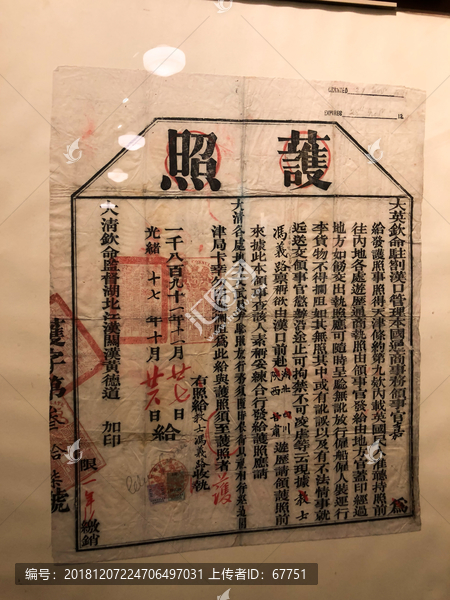 GRANTED
EXPIRES
護照
大英欽命駐劄漢口管理本國通商事務領事官嘉 為
給發護照事照得天津條約第九款內載英國民人准聽持照前
往內地各處遊歷通商執照由領事官發給由地方官蓋印經過
地方如飭交出執照應可隨時呈驗無訛放行僱船僱人裝運行
李貨物不得攔阻如其無照其中或有訛誤以及有不法情事就
近送交領事官懲辦沿途止可拘禁不可凌虐等云現據教士
馮義路稟稱欲由漢口前赴湖北 四川 陝西 甘肅遊歷請領護照前
來據此本領事查該人素稱妥練合行發給護照應請
大清各處
津局卡幸勿
為此給與護照須至護照者
右照給教士馮義路收執
一千八百九十一年十一月廿七日
光緒十七年十月廿六日 給
大清欽命監督湖北江漢關漢黃德道 加印
護字第叁拾柒號
限一年繳銷
編号：20181207224706497031 上传者ID：67751